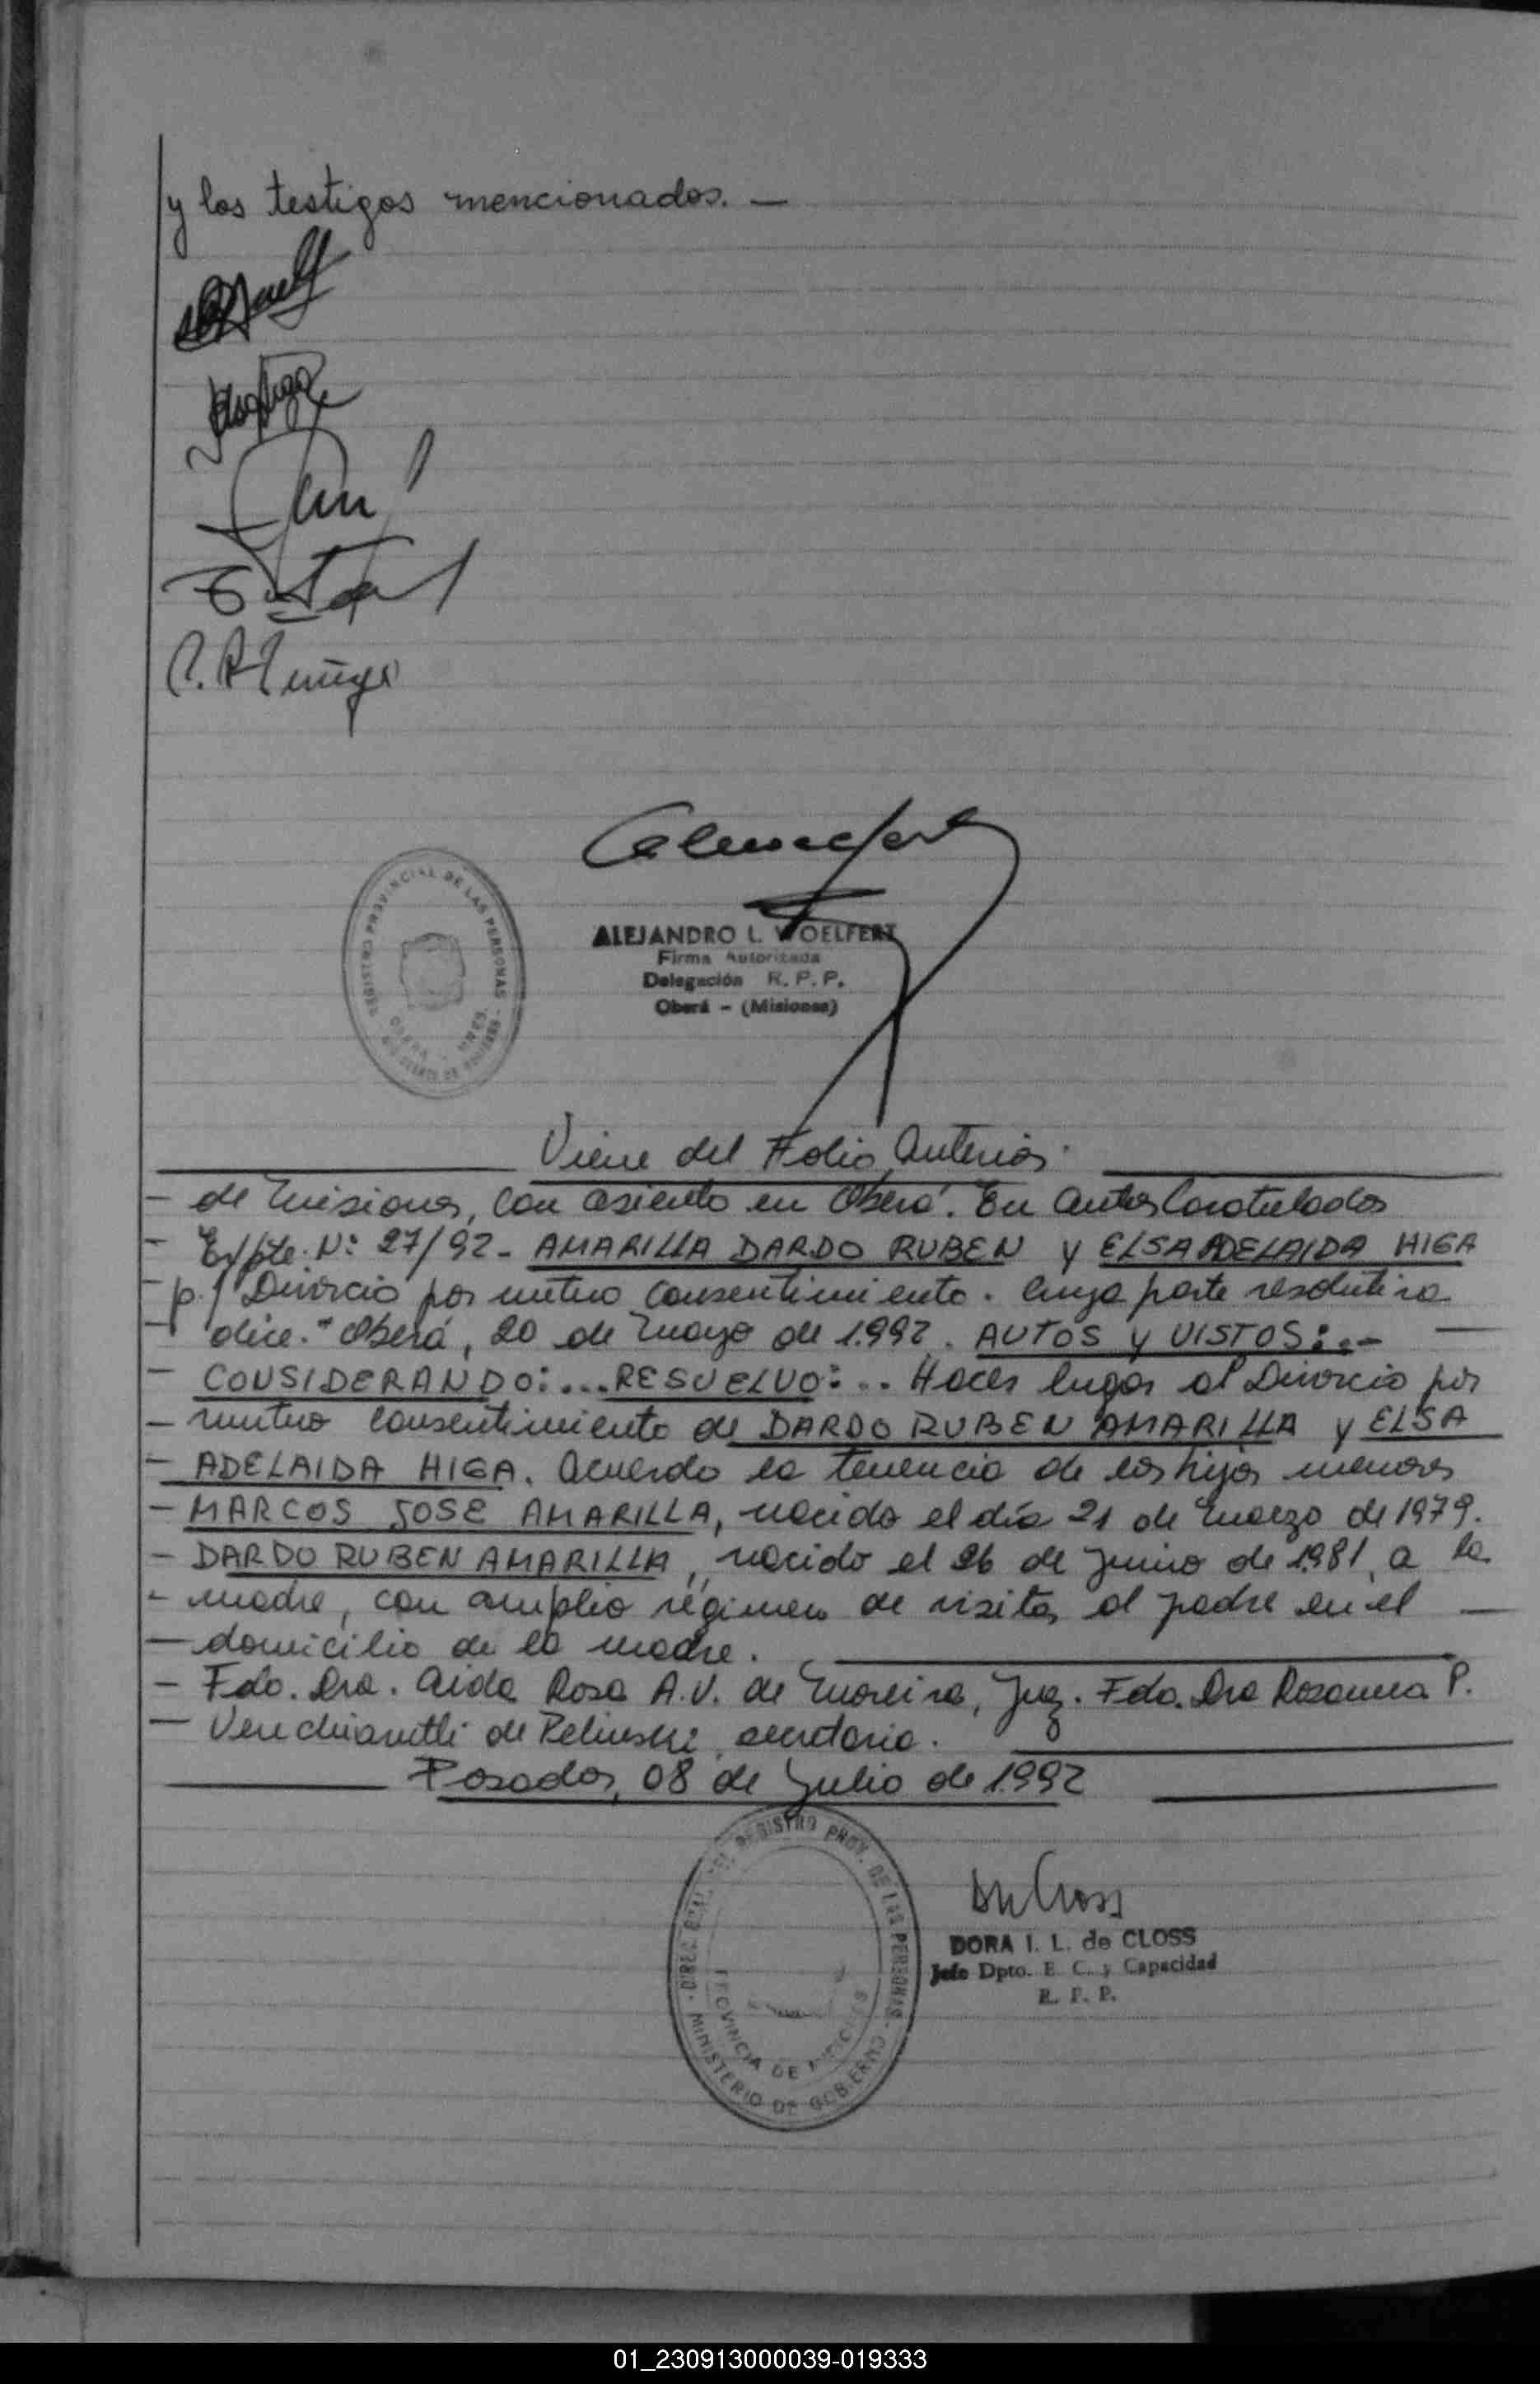 y los testigos mencionados. —
ALEJANDRO L. WOELFERT
Firma Autorizada
Delegación R. P. P.
Oberá - (Misiones)
REGISTRO PROVINCIAL DE LAS PERSONAS
Viene del Folio Anterior.
- de Misiones, con asiento en Oberá. En autos Caratulados
- Expte. Nº 27/92 - AMARILLA DARDO RUBEN y ELSA ADELAIDA HIGA
- p./ Divorcio por mutuo consentimiento. Cuya parte resolutiva
- dice. "Oberá, 20 de Mayo de 1.992. AUTOS y VISTOS:..-
- CONSIDERANDO:...RESUELVO:.. Hacer lugar al Divorcio por
- mutuo consentimiento de DARDO RUBEN AMARILLA y ELSA
- ADELAIDA HIGA. Acuerdo la tenencia de los hijos menores
- MARCOS JOSE AMARILLA, nacido el día 21 de Marzo de 1979.
- DARDO RUBEN AMARILLA, nacido el 26 de Junio de 1981, a la
- madre, con amplio régimen de visitas al padre en el —
- domicilio de la madre.
- Fdo. Dra. Aida Rosa A.V. de Moreira, Juez. Fdo. Dra Rosanna P.
- Venchiarutti de Pelinski, secretaria.
Posadas, 08 de Julio de 1992
REGISTRO PROV. DE LAS PERSONAS
PROVINCIA DE MISIONES
MINISTERIO DE GOBIERNO
DORA I. L. de CLOSS
Jefe Dpto. E. C. y Capacidad
R. P. P.
01_230913000039-019333